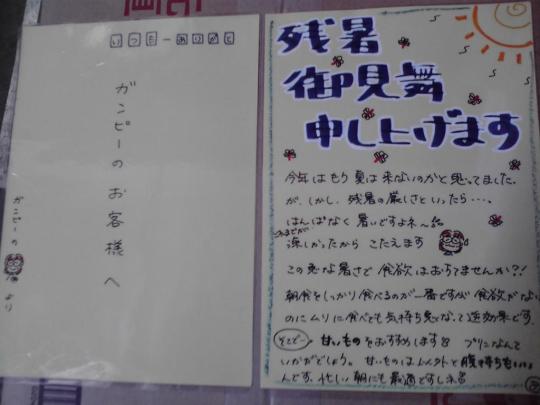 いつもーありがと
ガンピーの お客様 へ
ガンピーの より
残暑
御見舞
申し上げます
今年はもう夏は来ないのかと思ってました。
が、しかし、残暑の厳しさといったら…。
はんぱなく暑いですよネ〜
今までが
涼しかったから こたえます
この急な暑さで食欲はおちてませんか?!
朝食をしっかり食べるのが一番ですが食欲がない
のにムリに食べても気持ち悪くなって逆効果です。
そこでー 甘いものをおすすめします プリンなんて
いかがでしょう。甘いものは 腹持ちもいい
んです。忙しい朝にも最適ですしネ